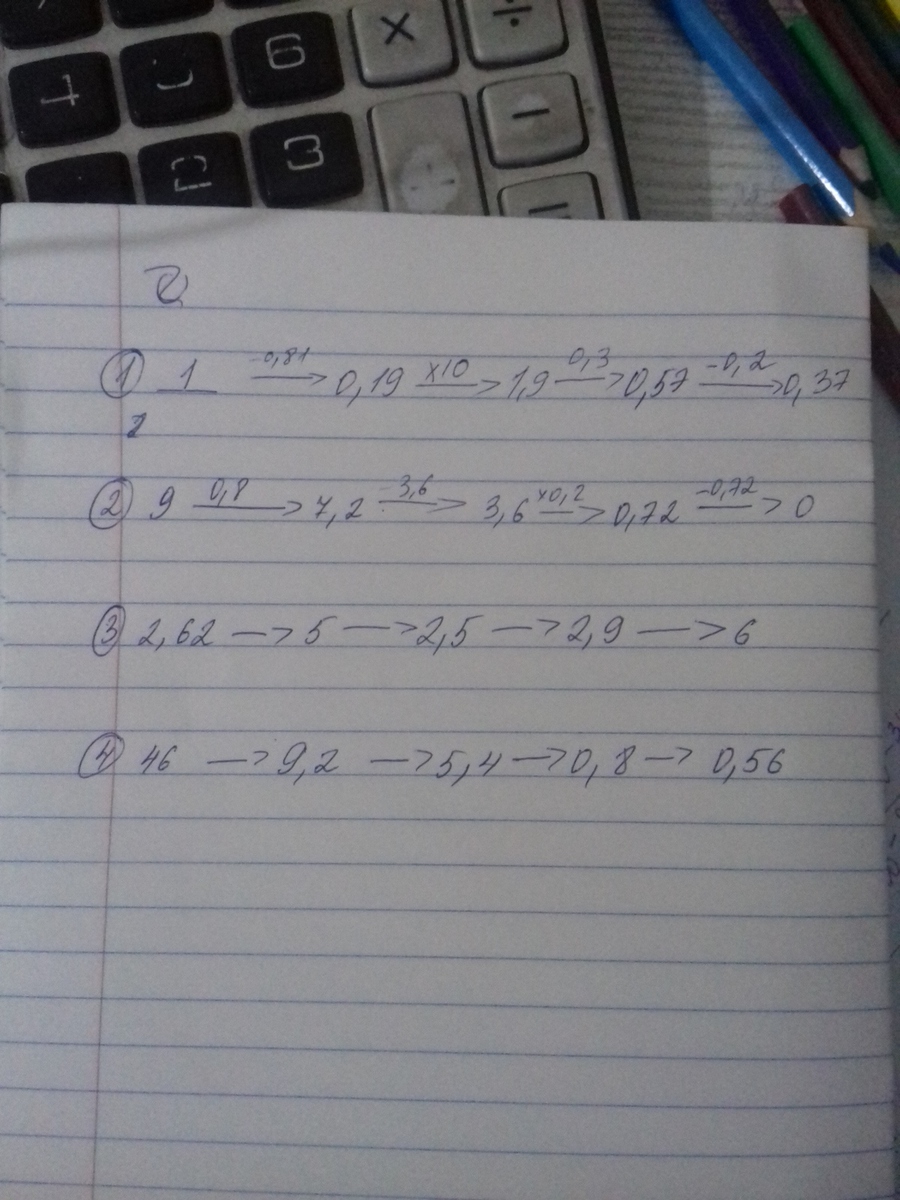 6 × ÷
3 −
① 1 -0,81 → 0,19 ×10 → 1,9 0,3 → 0,57 -0,2 → 0,37
② 9 0,8 → 7,2 -3,6 → 3,6 ×0,2 → 0,72 -0,72 → 0
③ 2,62 → 5 → 2,5 → 2,9 → 6
④ 46 → 9,2 → 5,4 → 0,8 → 0,56